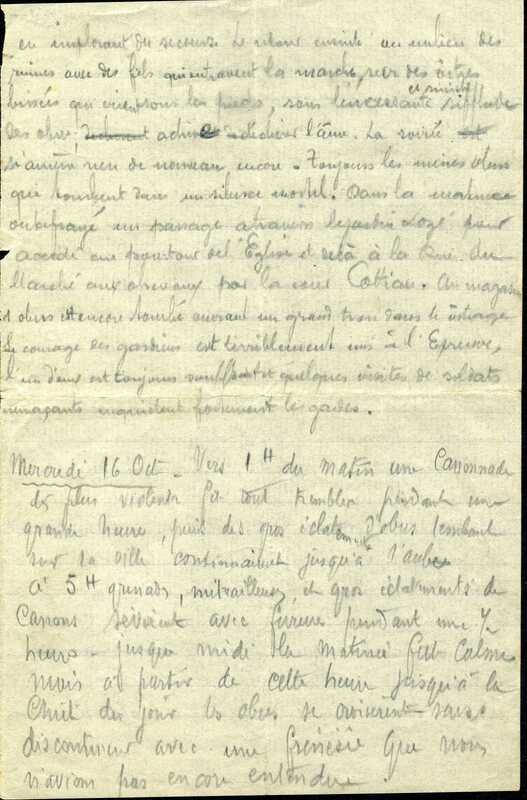 en implorant du secours. Le retour ensuite au milieu des
ruines avec des fils qui entravent la marche, sur des vitres
brisées qui crient sous les pieds, sous l'incessante et sinistre sifflade
des obus, à déchirer l'âme. La soirée
n'amène rien de nouveau encore. Toujours les mêmes obus
que tombent dans un silence mortel. Dans la matinée
on a frayé un passage à travers le jardin Logé pour
accéder au pourtour de l'Église et delà à la Rue du
Marché aux chevaux par la cour Cottiau. Au magasin
1 obus est encore tombé ouvrant un grand trou dans le
Le courage des gardiens est terriblement mis à l'Epreuve,
l'un d'eux est toujours souffrant et quelques visites de soldats
menaçants inquiètent fortement les gardes.
Mercredi 16 Oct - Vers 1H du matin une Canonnade
des plus violente fit tout trembler pendant une
grande heure, puis des gros éclatements d'obus tombant
sur la ville continuaient jusqu'à l'aube
à 5H grenades, mitrailleuses, et gros éclatements de
Canons sévirent avec fureur pendant une ½
heure - jusque midi la matinée fut Calme
mais à partir de cette heure jusqu'à la
Chute du jour les obus se croisèrent sans
discontinuer avec une frénésie que nous
n'avions pas encore entendue.